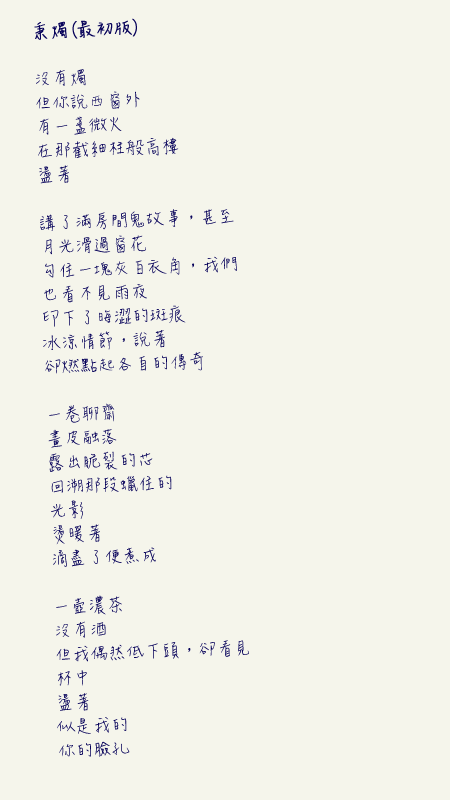 秉燭(最初版)
沒有燭
但你說西窗外
有一盞微火
在那截細柱般高樓
盪著
講了滿房間鬼故事，甚至
月光滑過窗花
勾住一塊灰白衣角，我們
也看不見雨夜
印下了晦澀的斑痕
冰涼情節，說著
卻燃點起各自的傳奇
一卷聊齋
畫皮融落
露出脆裂的芯
回溯那段蠟住的
光影
燙暖著
滴盡了便煮成
一壺濃茶
沒有酒
但我偶然低下頭，卻看見
杯中
盪著
似是我的
你的臉孔